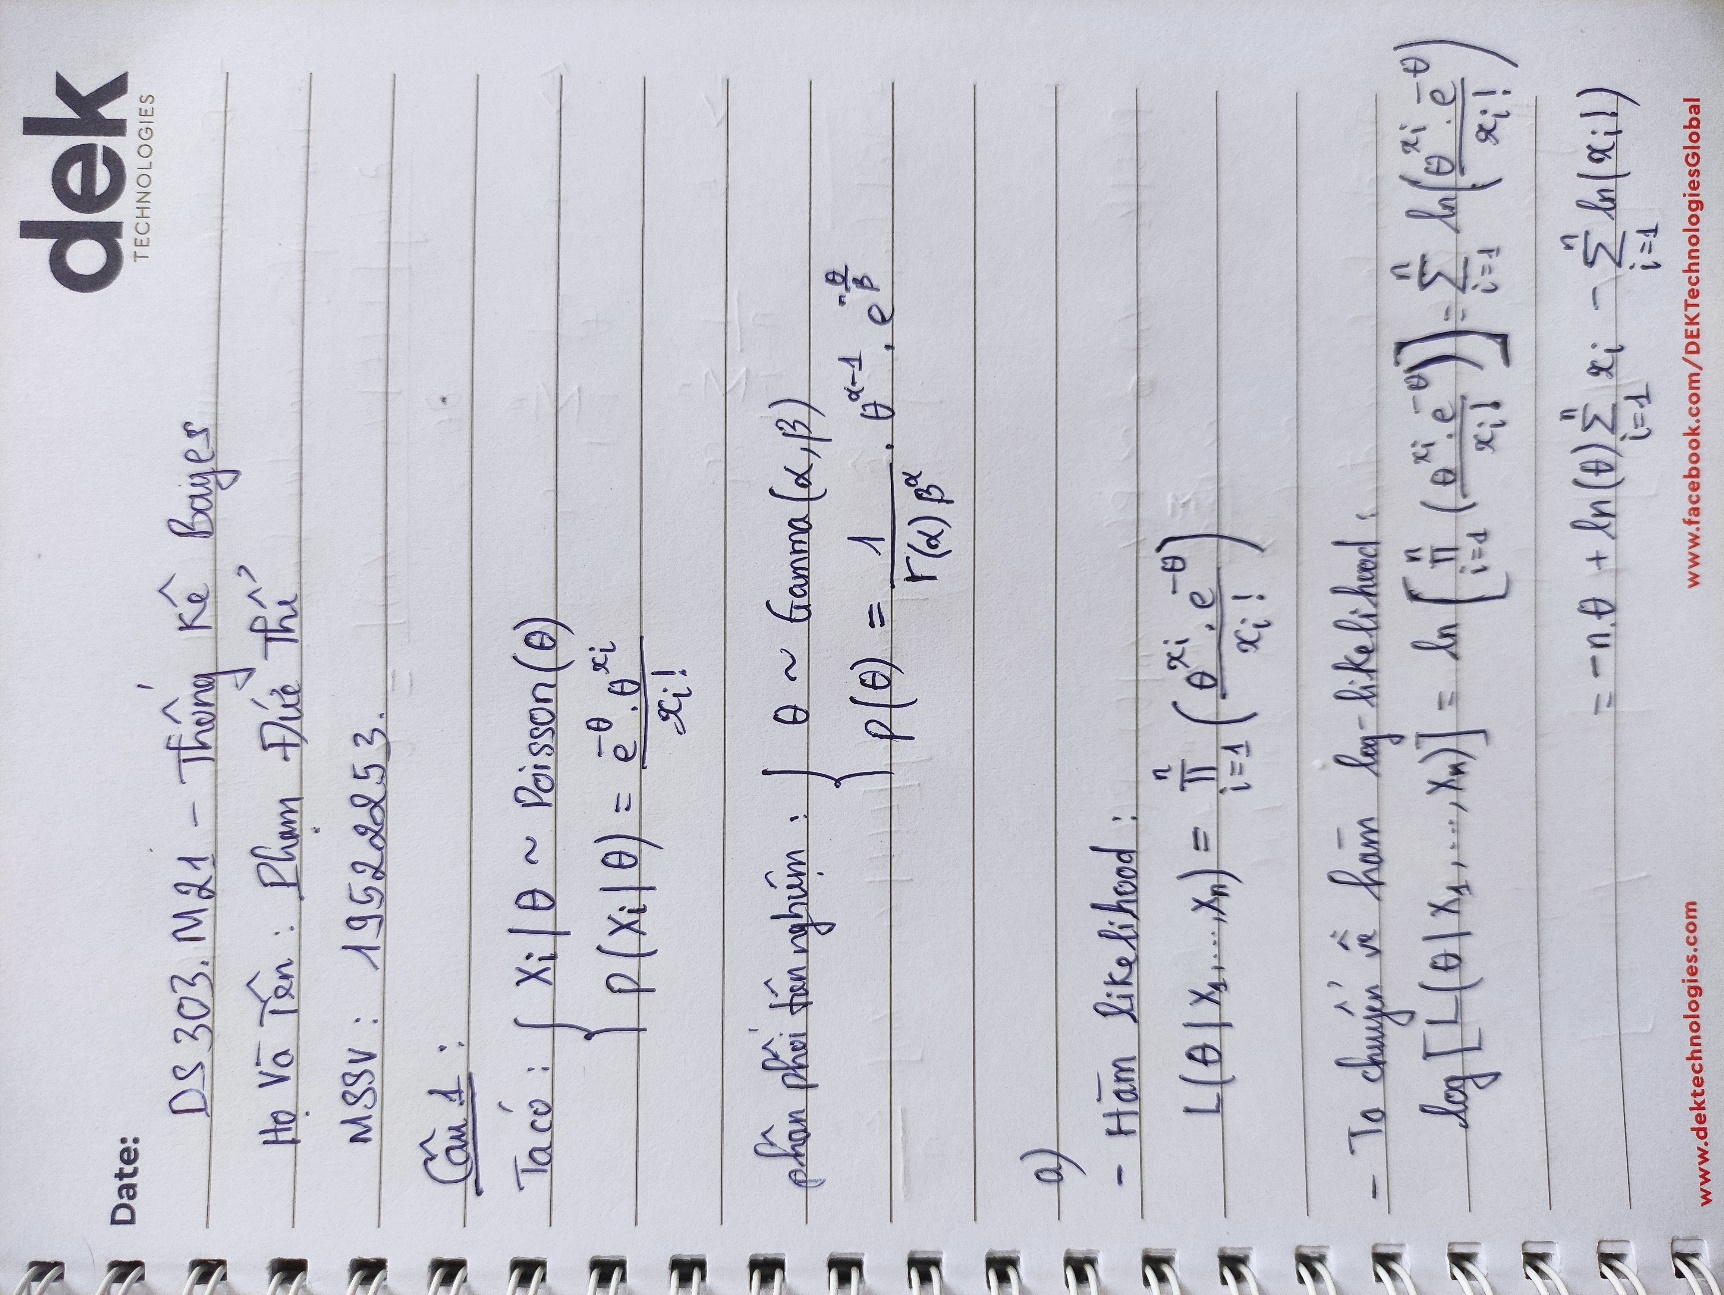 dek
TECHNOLOGIES
Date:
DS303.M21 - Thống Kê Bayes
Họ Và Tên : Phạm Đức Thể
MSSV : 19522253.
Câu 1 :
Ta có : { Xi | θ ~ Poisson(θ)
P(Xi | θ) = e^{-θ} . θ^{xi} / xi!
phân phối tiên nghiệm : { θ ~ Gamma(α, β)
P(θ) = 1 / Γ(α) β^α . θ^{α-1} . e^{-θ/β}
a)
- Hàm likelihood :
L(θ | X1, ..., Xn) = ∏_{i=1}^{n} (θ^{xi} . e^{-θ} / xi!)
- Ta chuyển về hàm log-likelihood :
log [L(θ | X1, ..., Xn)] = ln [∏_{i=1}^{n} (θ^{xi} . e^{-θ} / xi!)] = ∑_{i=1}^{n} ln(θ^{xi} . e^{-θ} / xi!)
= -n.θ + ln(θ) ∑_{i=1}^{n} xi - ∑_{i=1}^{n} ln(xi!)
www.dektechnologies.com www.facebook.com/DEKTechnologiesGlobal